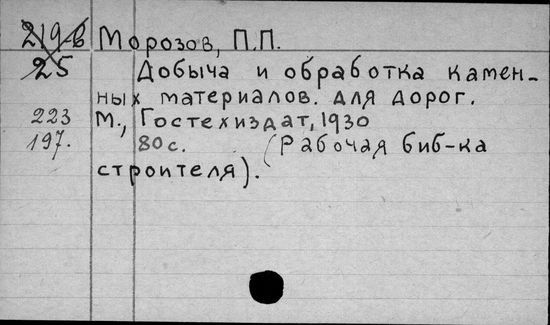 219-в Морозов, П.П.
25 Добыча и обработка камен-
ных материалов. для дорог.
223 М., Гостехиздат, 1930
197. 80 с. (Рабочая биб-ка
строителя).